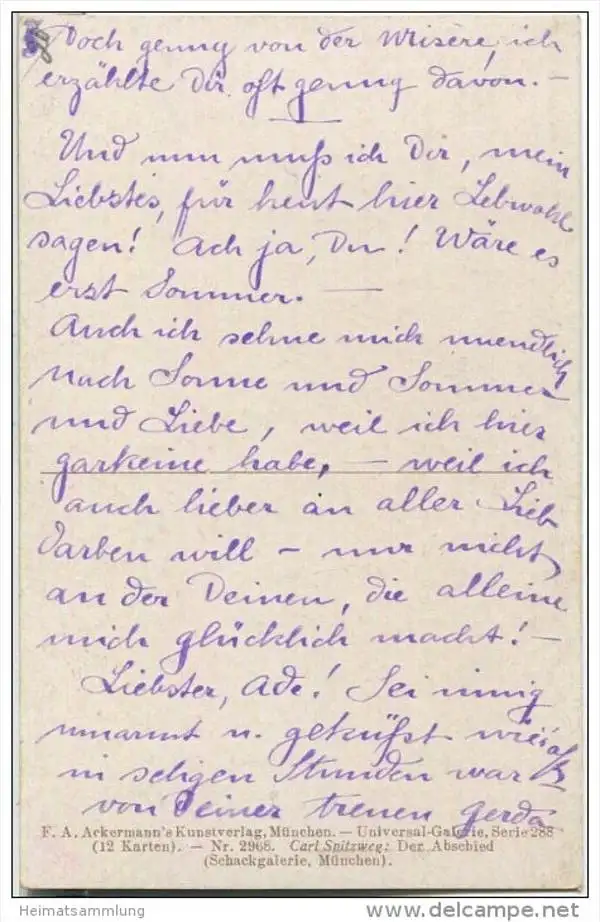 Doch genug von der Misère, ich
erzählte Dir oft genug davon. –
Und nun muß ich Dir, mein
Liebstes, für heut hier Lebwohl
sagen! Ach ja, Du! Wäre es
erst Sommer. —
Auch ich sehne mich unendlich
nach Sonne und Sommer
und Liebe, weil ich hier
garkeine habe, – weil ich
auch lieber an aller Lieb
darben will – nur nicht
an der Deinen, die alleine
mich glücklich macht! –
Liebster, Ade! Sei innig
umarmt u. geküßt wie's
in seligen Stunden war
von Deiner treuen Gerda
F. A. Ackermann's Kunstverlag, München. — Universal-Galerie, Serie 288
(12 Karten). — Nr. 2968. Carl Spitzweg: Der Abschied
(Schackgalerie, München).
Heimatsammlung
www.delcampe.net